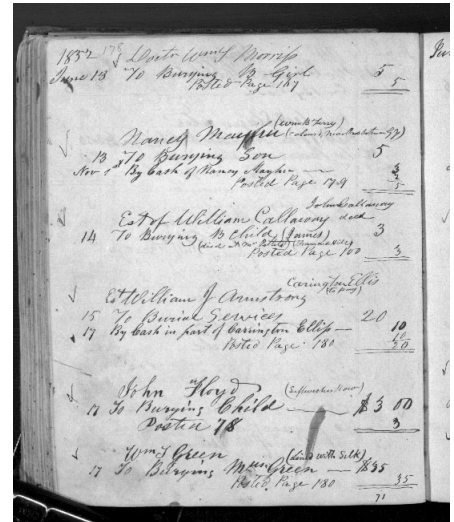 1852 178 Doctr Wm J Morriss
June 13 To Burying B Girl 5
Posted Page 147 5
Nancy Mayhu
(Colored, near
13 To Burying Son 5
Nov 1st By Cash of Nancy Mayhu 3
Posted Page 179 5
John Callaway
Est of William Callaway decd
14 To Burying B Child (James) 3
Posted Page 100 3
Carington Ellis
(to pay)
Est William J Armstrong
15 To Burial Services 20
17 By Cash in part of Carington Ellis — 10
Posted Page 180 20
John Floyd
17 To Burying Child — $3 00
Posted 78 3
Wm J Green (Lined with Silk)
17 To Burying Mrs Green — $35
Posted Page 180 35